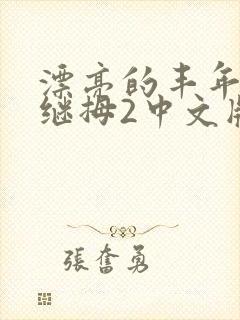 漂亮的丰年
继拇2中文版
張奮勇